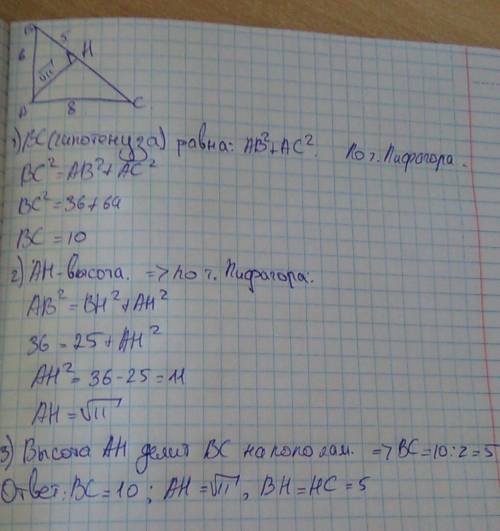 B
5
H
6
√11
A
8
C.
1) BC (гипотенуза) равна: AB²+AC². По т. Пифагора.
BC²=AB²+AC²
BC²=36+64
BC=10
2) AH-высота. => по т. Пифагора:
AB²=BH²+AH²
36=25+AH²
AH²=36-25=11
AH=√11
3) Высота AH делит BC на пополам. => BC=10:2=5
Ответ: BC=10; AH=√11, BH=HC=5